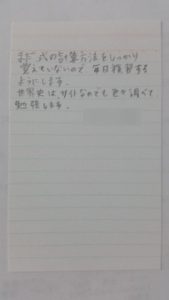 まだ 式の計算方法をしっかり
覚えていないので 毎日練習する
ようにします。
世界史は、サイトなのでも色々調べて
勉強します。